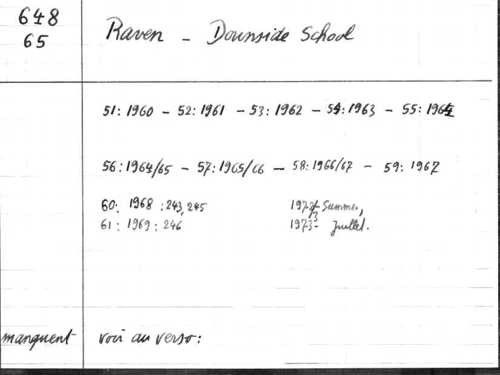 648
65
Raven - Downside School
51: 1960 - 52: 1961 - 53: 1962 - 54: 1963 - 55: 1964
56: 1964/65 - 57: 1965/66 - 58: 1966/67 - 59: 1967
60: 1968 : 243, 245
61: 1969 : 246
Summer,
1973- Juillet.
manquent voir au verso: